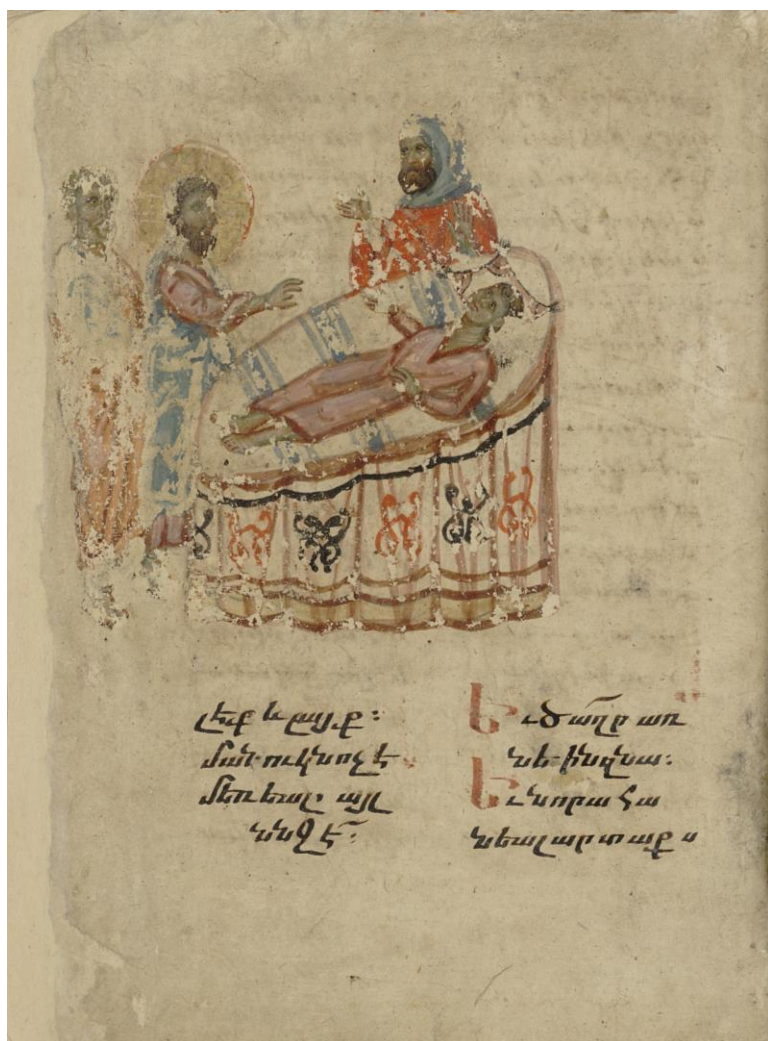 լէք և լայք։
մանուկն ոչ է
մեռեալ. այլ
ննջէ։
Եւ ծաղր առ
նեին զնա։
Եւ նորա հա
նեալ արտաքս